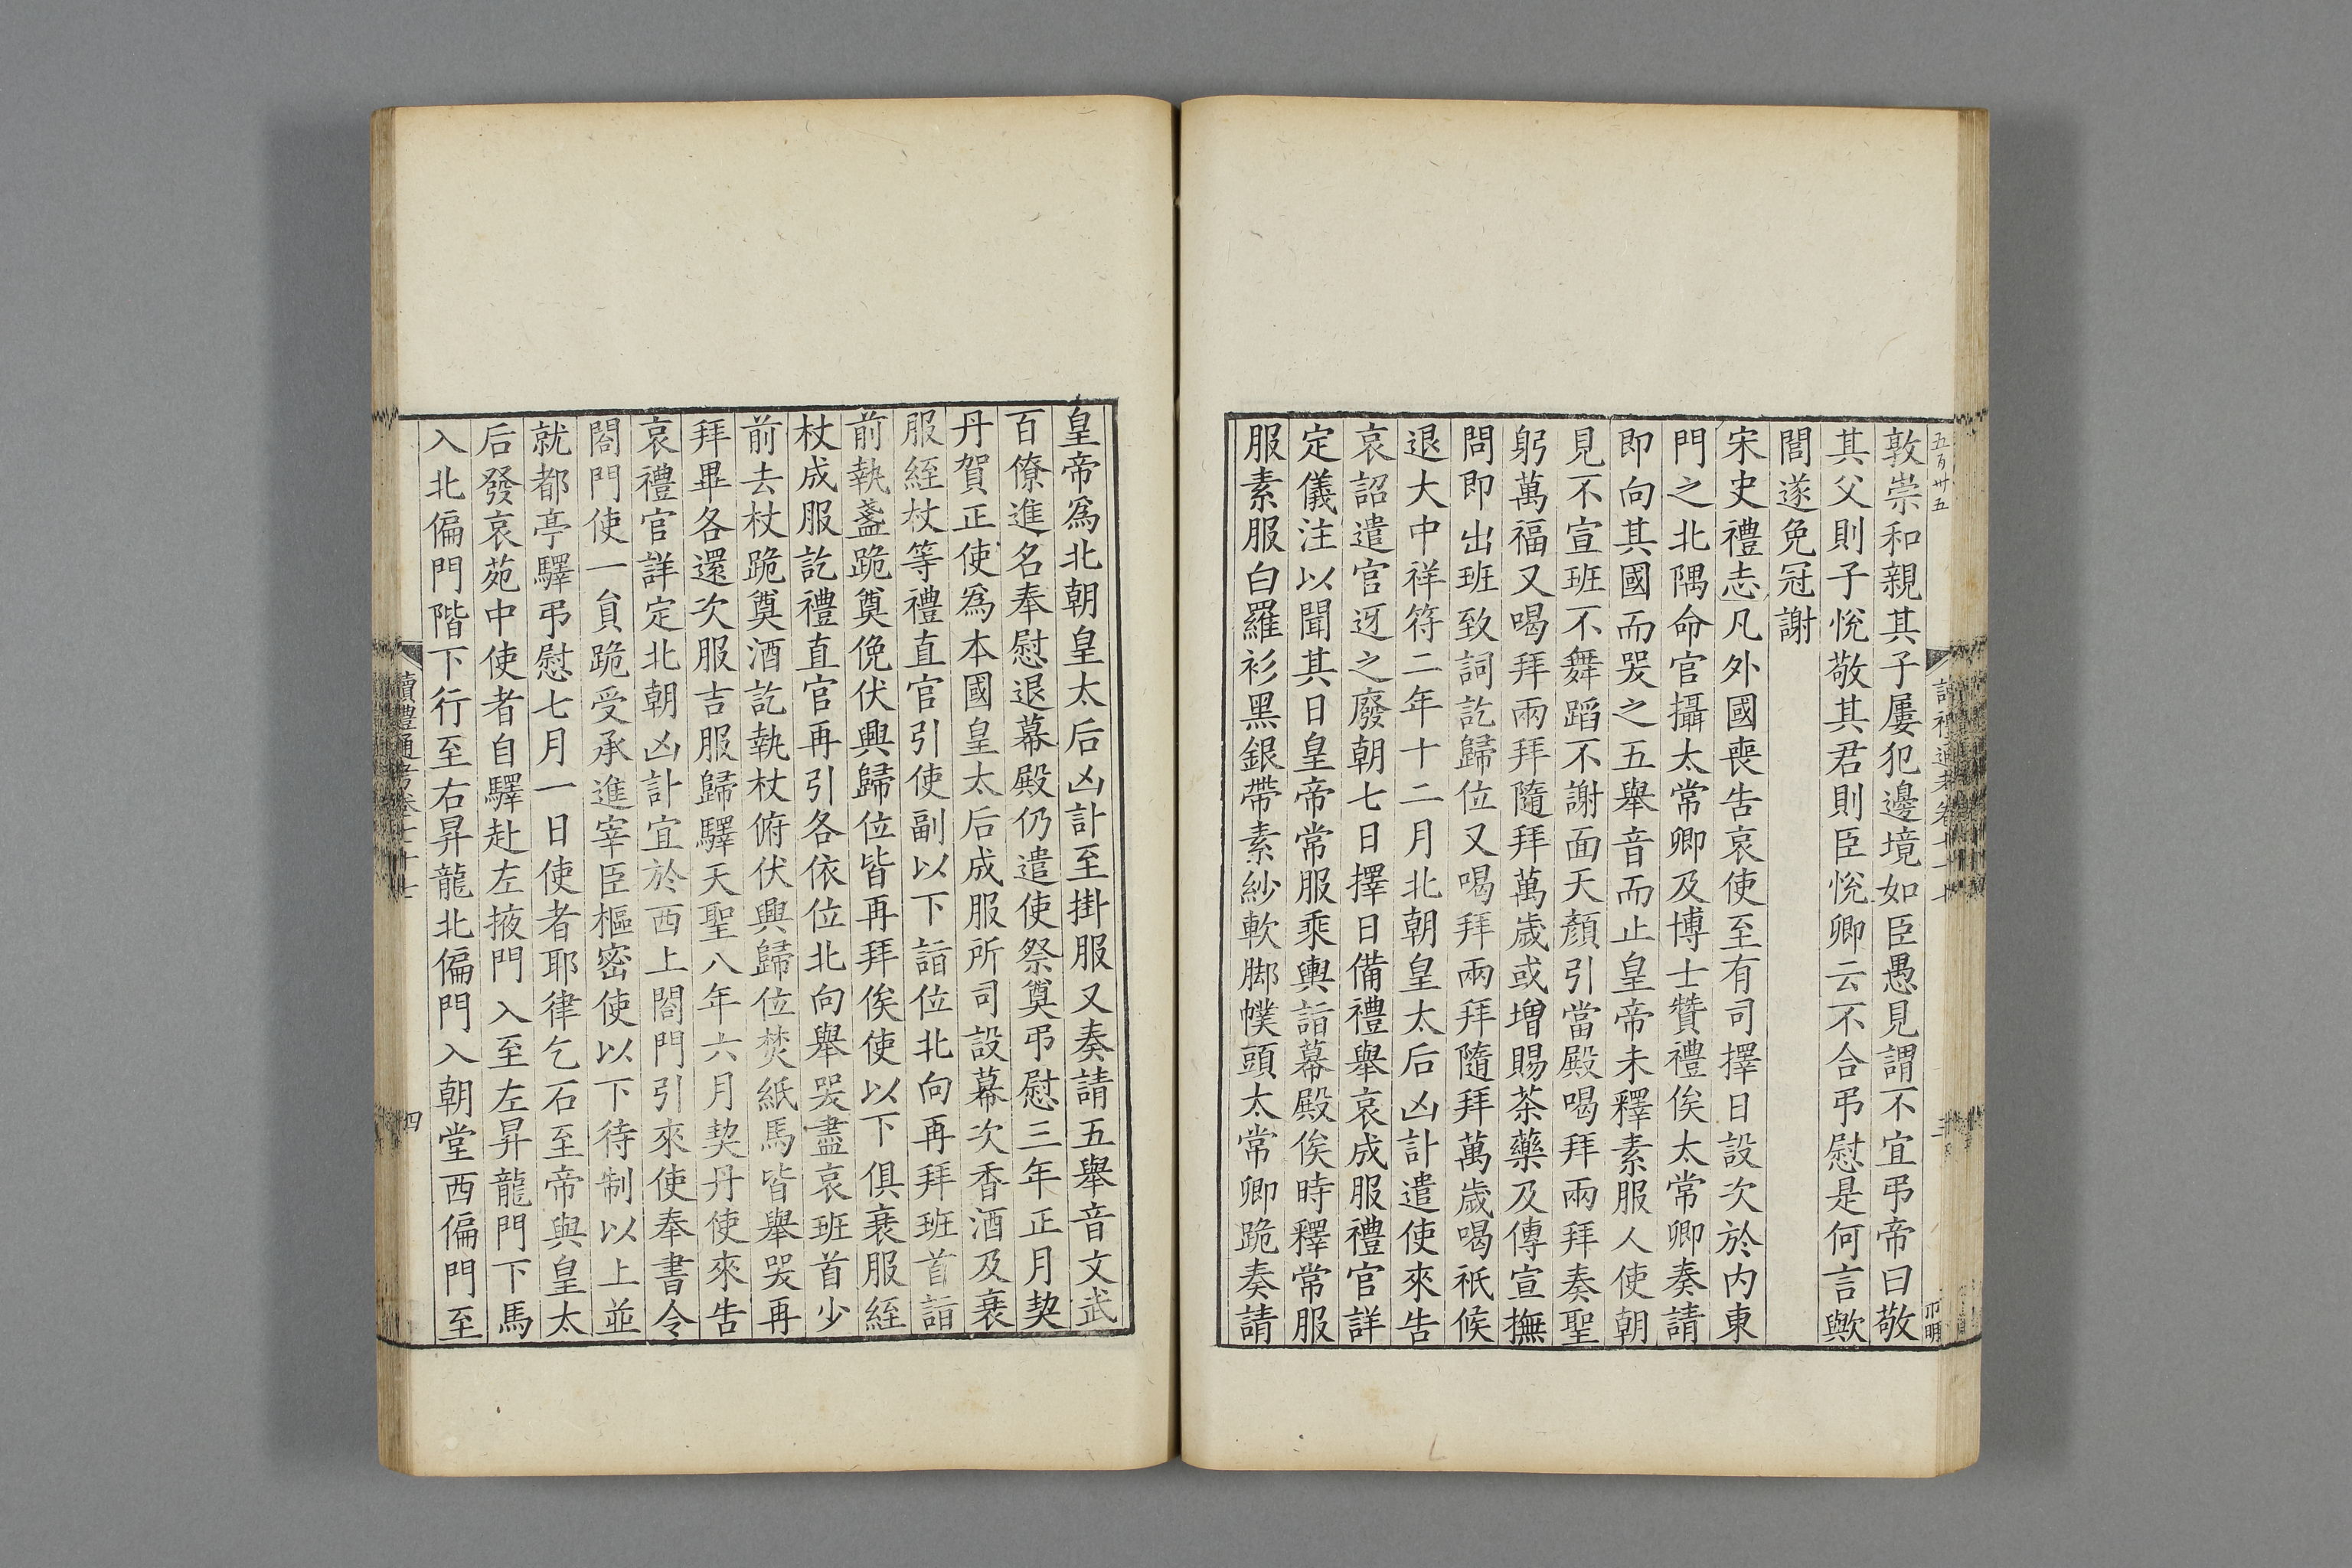 五百卅五
敦崇和親其子屢犯邊境如臣愚見謂不宜弔帝曰敬
其父則子悅敬其君則臣悅卿云不合弔慰是何言歟
誾遂免冠謝
宋史禮志凡外國喪告哀使至有司擇日設次於内東
門之北隅命官攝太常卿及博士贊禮俟太常卿奏請
即向其國而哭之五舉音而止皇帝未釋素服人使朝
見不宣班不舞蹈不謝面天顏引當殿喝拜兩拜奏聖
躬萬福又喝拜兩拜隨拜萬歲或增賜茶藥及傳宣撫
問即出班致詞訖歸位又喝拜兩拜隨拜萬歲喝祇候
退大中祥符二年十二月北朝皇太后凶計遣使來告
哀詔遣官迓之廢朝七日擇日備禮舉哀成服禮官詳
定儀注以聞其日皇帝常服乘輿詣幕殿俟時釋常服
服素服白羅衫黑銀帶素紗軟脚幞頭太常卿跪奏請
皇帝爲北朝皇太后凶計至掛服又奏請五舉音文武
百僚進名奉慰退幕殿仍遣使祭奠弔慰三年正月契
丹賀正使爲本國皇太后成服所司設幕次香酒及衰
服絰杖等禮直官引使副以下詣位北向再拜班首詣
前執盞跪奠俛伏興歸位皆再拜俟使以下俱衰服絰
杖成服訖禮直官再引各依位北向舉哭盡哀班首少
前去杖跪奠酒訖執杖俯伏興歸位焚紙馬皆舉哭再
拜畢各還次服吉服歸驛天聖八年六月契丹使來告
哀禮官詳定北朝凶計宜於西上閤門引來使奉書令
閤門使一員跪受承進宰臣樞密使以下待制以上並
就都亭驛弔慰七月一日使者耶律乞石至帝與皇太
后發哀苑中使者自驛赴左掖門入至左昇龍門下馬
入北偏門階下行至右昇龍北偏門入朝堂西偏門至
讀禮通考卷七十七
四